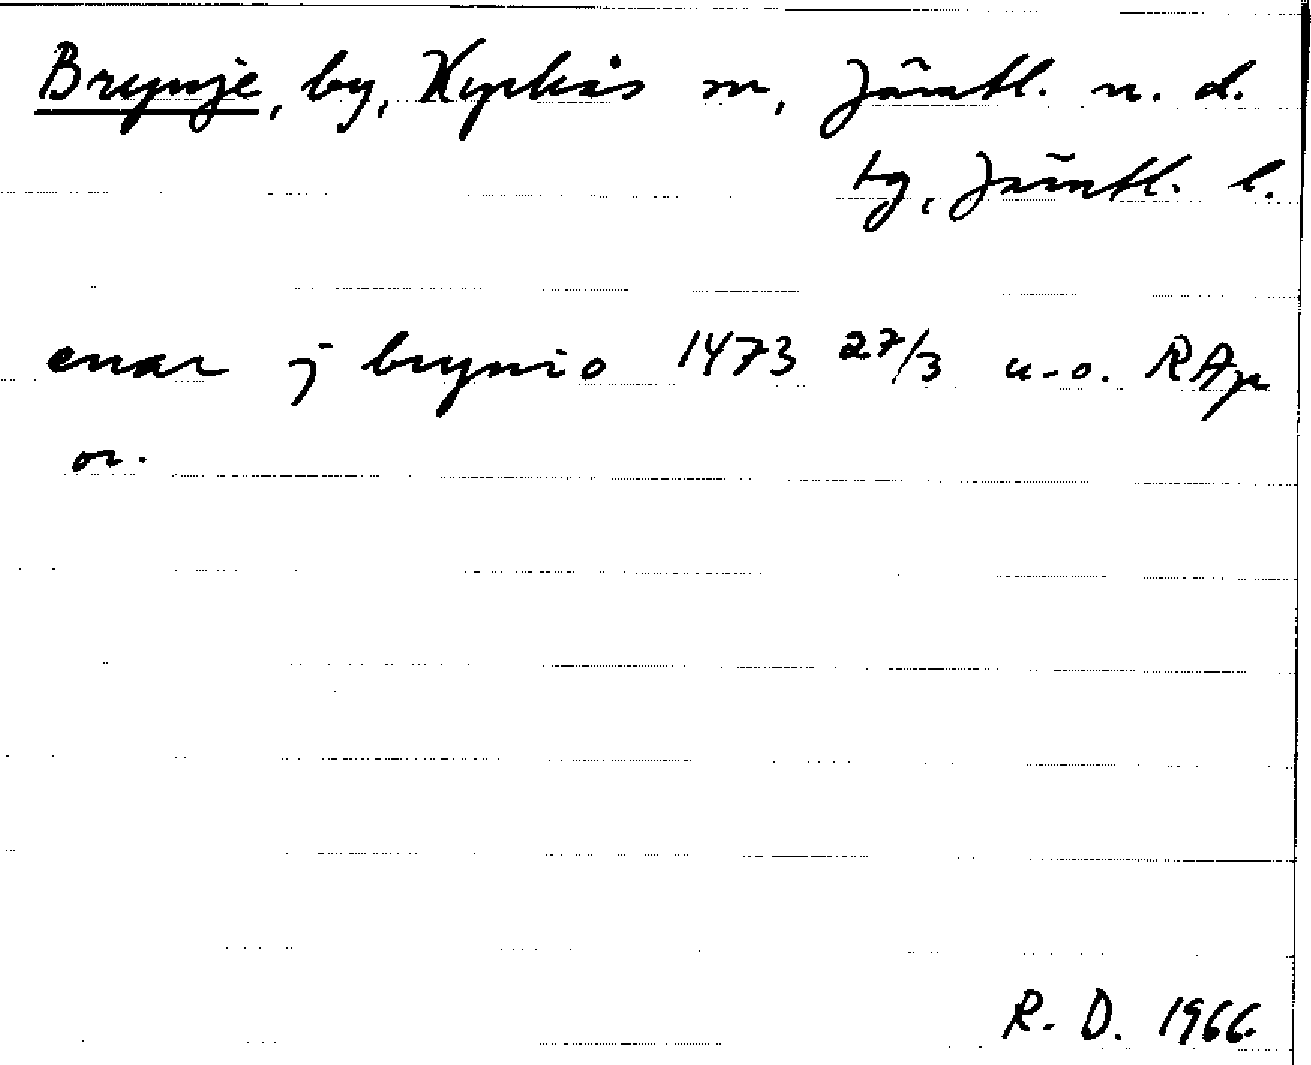 Brynje, by, Kyrkås sn, Jämtl. n. d.
tg, Jämtl. l.
enar j brynio 1473 27/3 u.o. RAp
or.
R. D. 1966